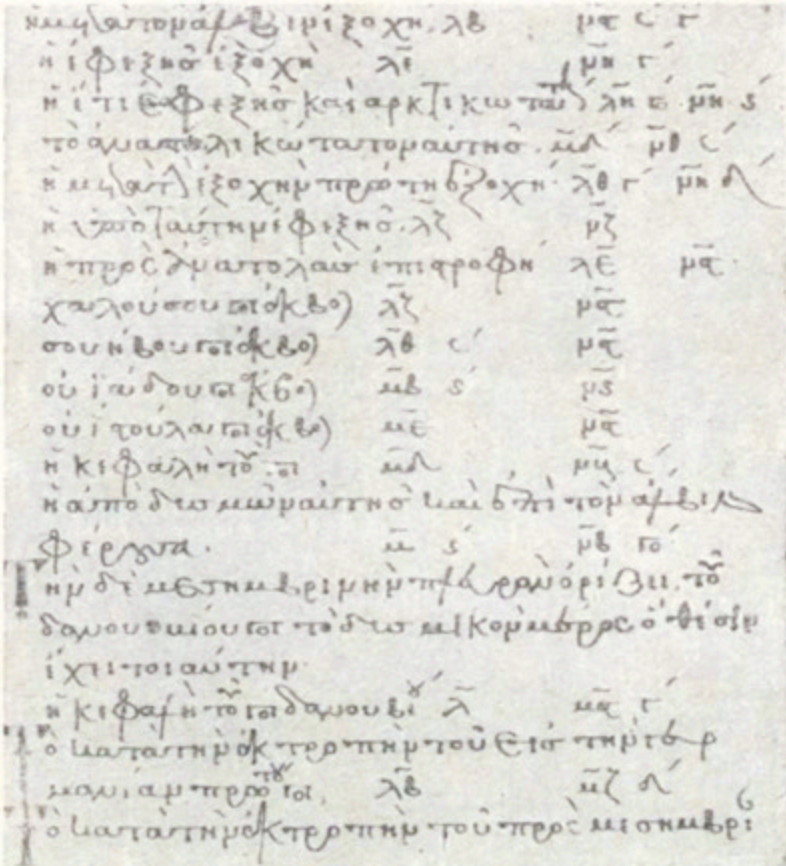 ἡ μετὰ τὸν ἄλβιν ἐξοχή. λβ
ἡ ἐφεξῆς ἐξοχὴ λε γ´
ἡ ἔτι ἐφεξῆς καὶ ἀρκτικωτάτη λη
τὸ ἀνατολικώτατον αὐτῆς.
ἡ μετὰ τὴν ἐξοχὴν πρώτη ἐξοχή λθ γ´ δ´
ἡ ὑπὸ ταύτην ἐφεξῆς. λζ νζ
ἡ πρὸς ἀνατολὰς ἐπιστροφή λε νϛ
χαλούσου ποτ ἐκβολ λζ νϛ
σουήβου ποτ ἐκβολ λθ νϛ
οὐϊάδου ποτ ἐκβολ μβ
οὐιτούλα ποτ ἐκβολ με νϛ
ἡ κεφαλὴ τοῦ ποτ μδ
ἡ ἀπὸ δυσμῶν αὐτῆς καὶ ἐπὶ τὸν ἄλβιν
φέρουσα. νβ γο´
τὴν δὲ μεσημβρινὴν πλευρὰν ὁρίζει τοῦ
δανουβίου ποτ τὸ δυσμικὸν μέρος ὃ θέσιν
ἔχει τοιαύτην
ἡ κεφαλὴ τοῦ ποτ δανουβίου λ μϛ γ´
ὁ κατὰ τὴν ἐκτροπὴν τοῦ εἰς τὴν γερ
μανίαν πρώτου ποτ. λβ μζ δ´
ὁ κατὰ τὴν ἐκτροπὴν τοῦ πρὸς μεσημβρί